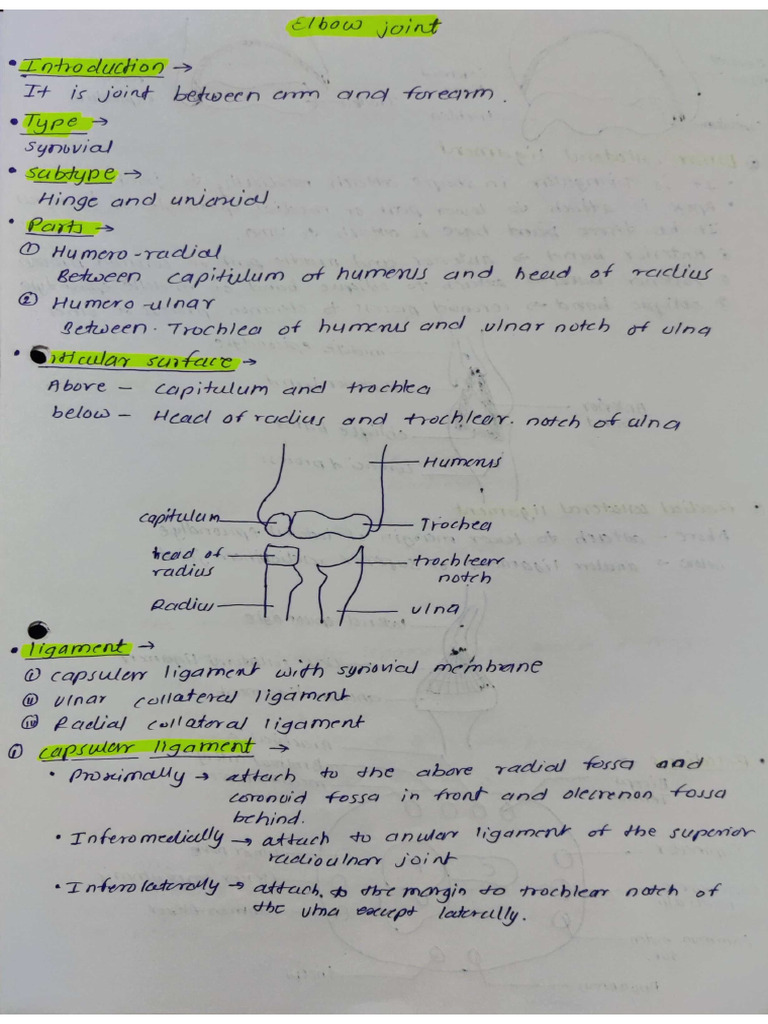 Elbow joint
• Introduction →
It is joint between arm and forearm.
• Type →
synovial
• subtype →
Hinge and uniaxial
• Parts →
① Humero-radial
Between capitulum of humerus and head of radius
② Humero-ulnar
Between. Trochlea of humerus and ulnar notch of ulna
• articular surface →
Above - capitulum and trochlea
below - Head of radius and trochlear. notch of ulna
Humerus
capitulum
Trochea
head of
radius
trochlear
notch
Radius
ulna
• ligament →
① capsular ligament with synovial membrane
⑪ ulnar collateral ligament
Radial collatoral ligament
① capsular ligament →
• Proximally → attach to the above radial fossa and
coronoid fossa in front and olecrenon fossa
behind.
• Inferomedially → attach to anular ligament of the superior
radioulnar joint
• Inferolaterally → attach. to the margin to trochlear notch of
the ulna except laterally.